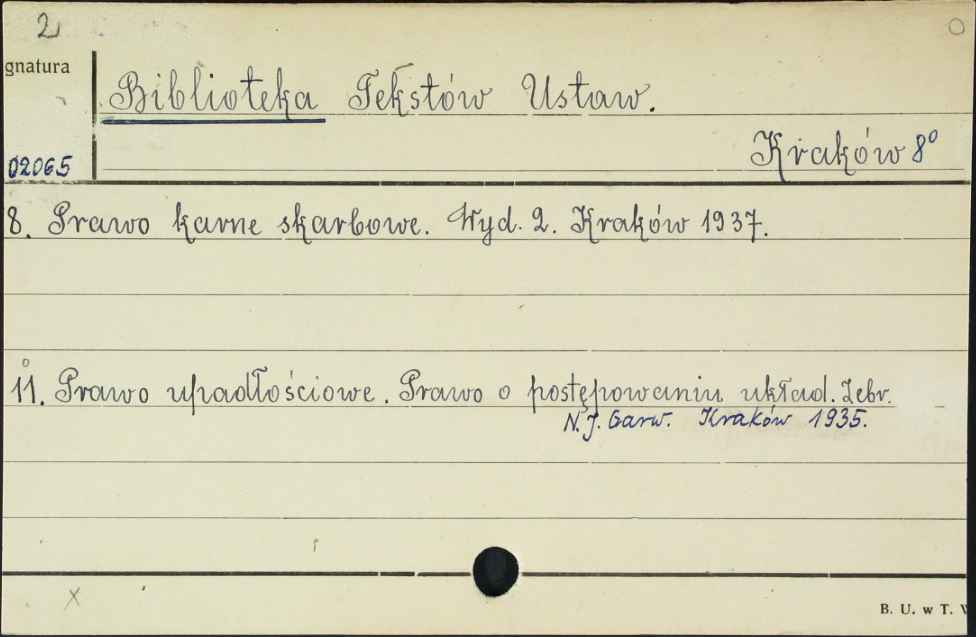 2
gnatura
Biblioteka Tekstów Ustaw.
Kraków 8⁰
02065
8. Prawo karne skarbowe. Wyd. 2. Kraków 1937.
11. Prawo upadłościowe. Prawo o postępowaniu układ. Zebr.
N. J. Garw. Kraków 1935.
x
B. U. w T.